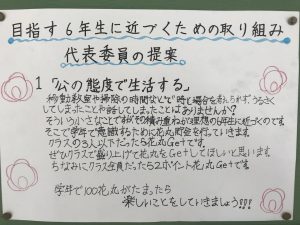 目指す6年生に近づくための取り組み
代表委員の提案
1「公の態度で生活する」
移動教室や掃除の時間などで時と場合を考えられず、うるさく
してしまったことや話してしまったことはありませんか?
そういう小さなことの積み重ねが理想の6年生に近づくのです。
そこで学年で意識するために花丸貯金を行っていきます
クラスの3人以下だったら花丸Getです。
ぜひクラスで盛り上げて花丸をGetしてほしいと思います。
ちなみにクラス全員だったら2ポイント花丸Getです。
学年で100花丸がたまったら
楽しいことをしていきましょう!!!